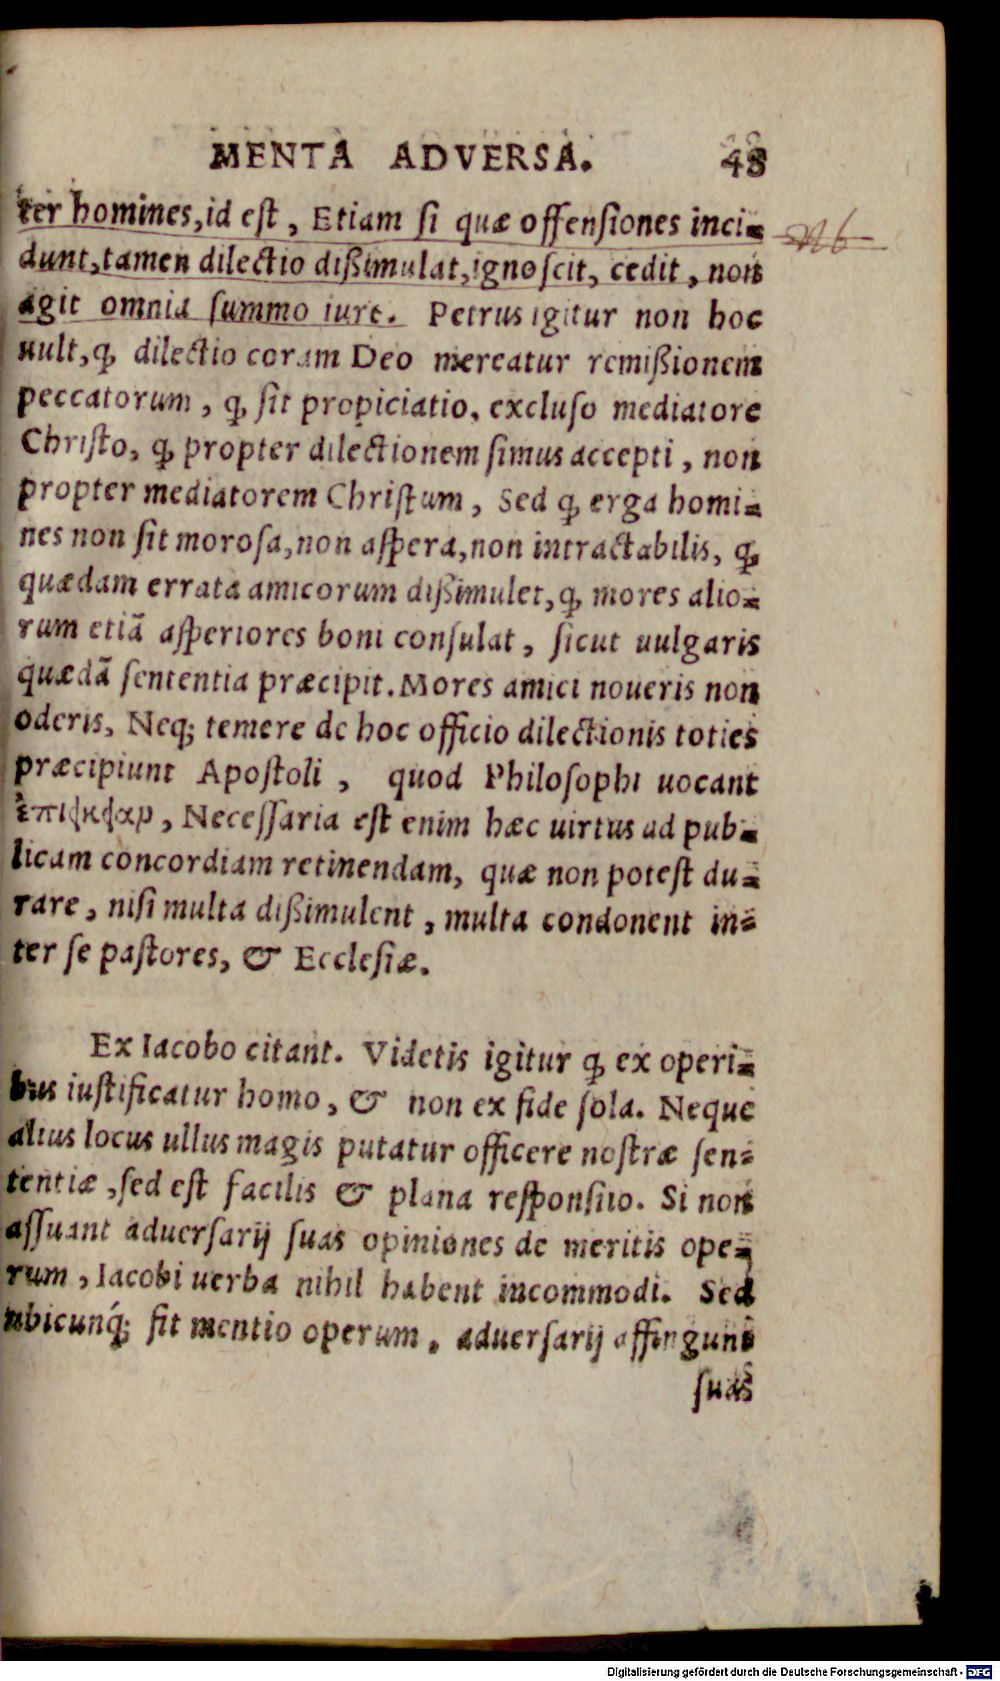 MENTA ADVERSA. 48
ter homines, id est, Etiam si quæ offensiones inci=
dunt, tamen dilectio dißimulat, ignoscit, cedit, non
agit omnia summo iure. Petrus igitur non hoc
uult, ꝙ dilectio coram Deo mereatur remißionem
peccatorum, ꝙ sit propiciatio, excluso mediatore
Christo, ꝙ propter dilectionem simus accepti, non
propter mediatorem Christum, Sed ꝙ erga homi=
nes non sit morosa, non aspera, non intractabilis, ꝙ
quædam errata amicorum dißimulet, ꝙ mores alio=
rum etiã asperiores boni consulat, sicut uulgaris
quædã sententia præcipit. Mores amici noueris non
oderis, Neq; temere de hoc officio dilectionis toties
præcipiunt Apostoli, quod Philosophi uocant
, Necessaria est enim hæc uirtus ad pub=
licam concordiam retinendam, quæ non potest du=
rare, nisi multa dißimulent, multa condonent in=
ter se pastores, & Ecclesiæ.
Ex Iacobo citant. Videtis igitur ꝙ ex operi=
bus iustificatur homo, & non ex fide sola. Neque
alius locus ullus magis putatur officere nostræ sen=
tentiæ, sed est facilis & plana responsio. Si non
assuant aduersarij suas opiniones de meritis ope=
rum, Iacobi uerba nihil habent incommodi. Sed
ubicunq́; fit mentio operum, aduersarij affingunt
suas
Digitalisierung gefördert durch die Deutsche Forschungsgemeinschaft - DFG